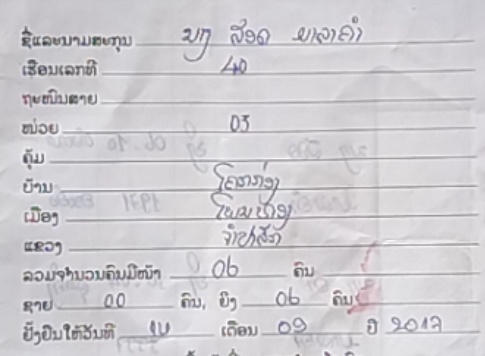 ຊື່ແລະນາມສະກຸນ ນາງ ສີອດ ມາລາຄຳ
ເຮືອນເລກທີ 40
ຖະໜົນສາຍ
ໜ່ວຍ 03
ຄຸ້ມ
ບ້ານ
ເມືອງ
ແຂວງ ຈຳປາສັກ
ລວມຈຳນວນຄົນມີໜ້າ 06 ຄົນ
ຊາຍ 00 ຄົນ, ຍິງ 06 ຄົນ
ຢັ້ງຢືນໃຫ້ວັນທີ ເດືອນ 09 ປີ 2017